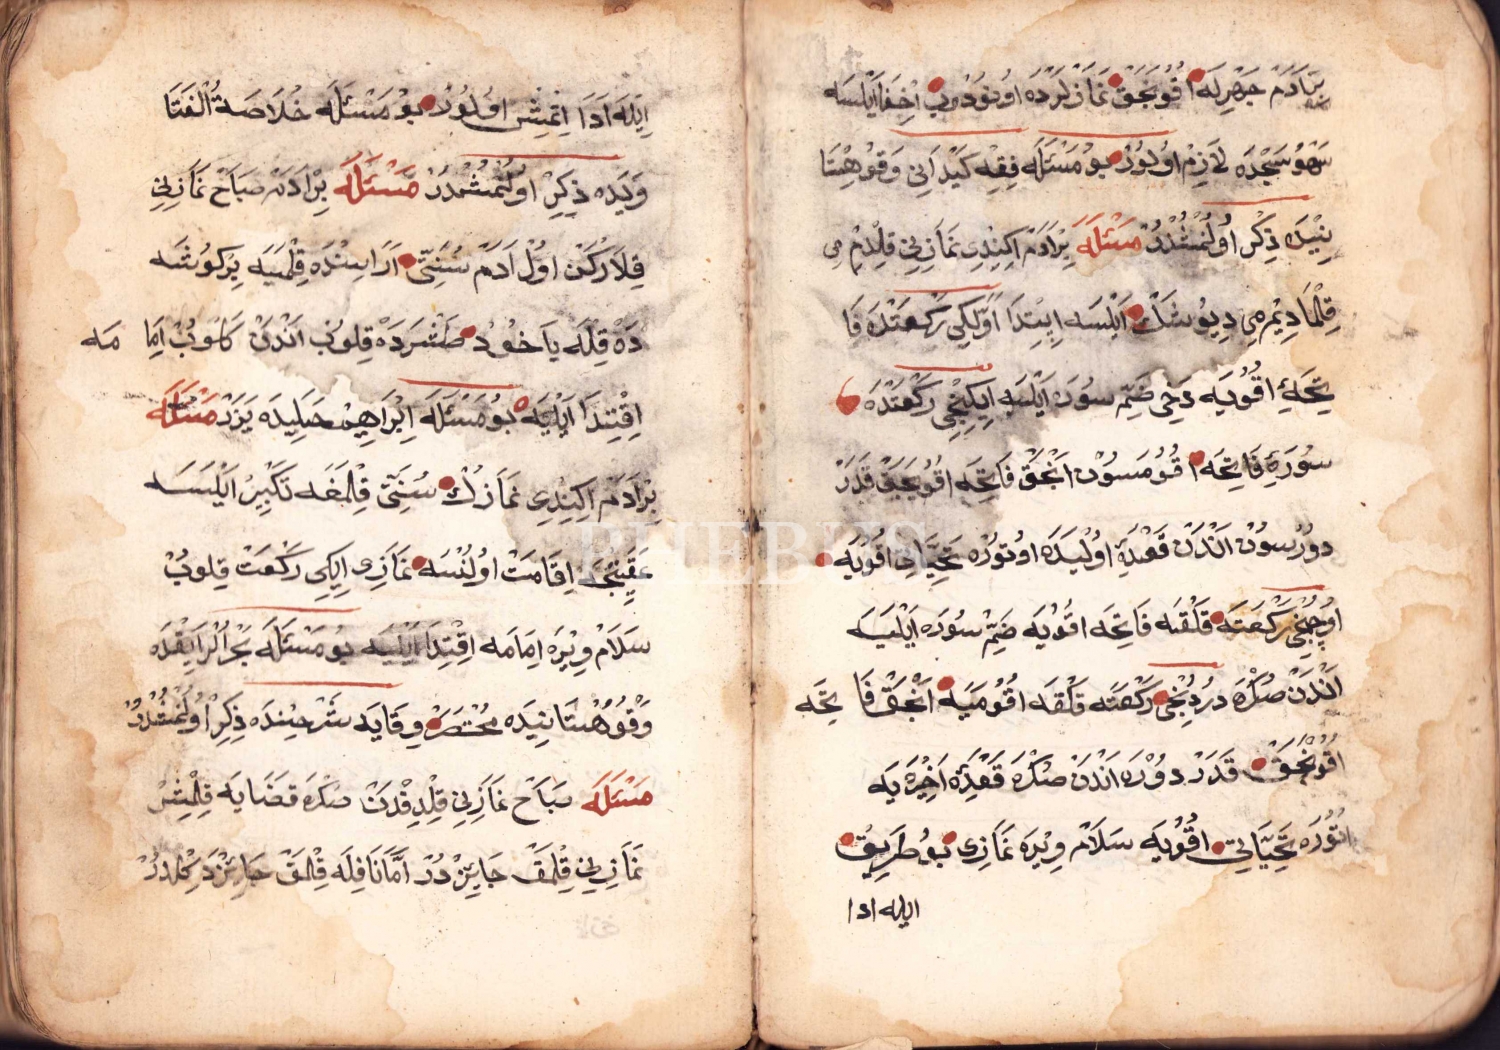 بر ادم جهرله اقویجق نمازلرده اونودوب اخفا ایلسه
سهو سجده لازم اولور بو مسئله فقه کیدانی وقوهستا
نیده ذکر اولنمشدر مسئله بر ادم اکیندی نمازینی قلدم می
قلمادیم می دیو شک ایلسه ابتدا اولکی رکعتده فا
تحهٔ اقویه دخی ضم سوره ایلیه ایکنجی رکعتده
سورهٔ فاتحه اقومسون انجق فاتحه اقویجق قدر
دورسون اندن قعدهٔ اولیده اوتوره تحیات اقویه
اوچنجی رکعته قلقه فاتحه اقویه ضم سوره ایلیه
اندن صکره دردنجی رکعته قلقه اقومیه انجق فا تحه
اقویجق قدر دوره اندن صکره قعدهٔ اخیره یه
اتوره تحیاتی اقویه سلام ویره نمازی بو طریق
ایله ادا
ایله ادا اتمش اولور بو مسئله خلاصة الفتا
ویده ذکر اولنمشدر مسئله بر ادم صباح نمازینی
قلارکن اول ادم سنتی اراسنده قلمیه بر کوشه
ده قله یاخود طشرده قلوب اندن کلوب اما مه
اقتدا ایلیه بو مسئله ابراهیم حلبیده یزر مسئله
بر ادم اکیندی نمازک سنتی قلمغه تکبیر ایلسه
عقبنجه اقامت اولنسه نمازی ایکی رکعت قلوب
سلام ویره امامه اقتدا ایلیه بو مسئله بحر الرایقده
وقوهستانیده مختصر وقایه شرحنده ذکر اولنمشدر
مسئله صباح نمازینی قلدقدن صکره قضایه قلمش
نمازینی قلمق جایزدر اما نافله قلمق جایز دکلدر
PHEBUS